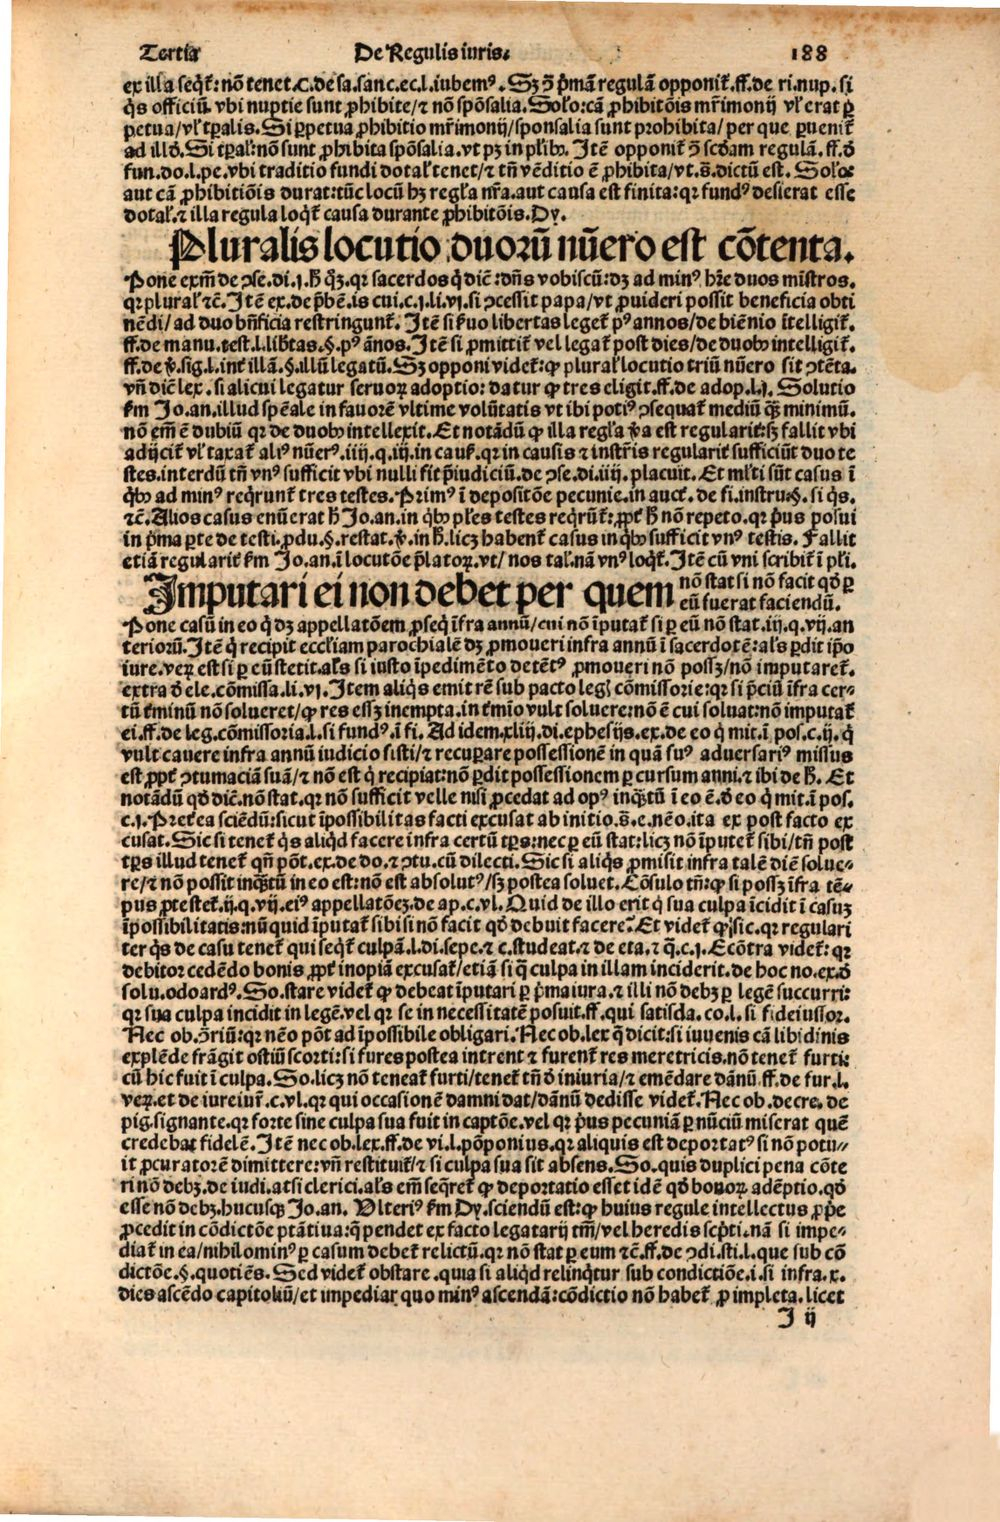 Tertia De Regulis iuris. 188
ex illa seqt̄: nō tenet. C. de sa. sanc. ec. l. iubem⁹. Sꝫ ↄ̄ p̄mā regulā opponit̄. ff. de ri. nup. si
q̇s officiū. vbi nuptie sunt ꝓhibite / ⁊ nō spōsalia. Solo: cā ꝓhibitōis mr̄imonij vl̓ erat ꝑ
petua / vl̓ tꝑalis. Si ꝑpetua ꝓhibitio mr̄imonij / sponsalia sunt prohibita / per que ꝑuenit̄
ad illō. Si tꝑal̓: nō sunt ꝓhibita spōsalia. vt pꝫ in pl̓ibꝰ. Itē opponit̄ ↄ̄ scd̄am regulā. ff. ð
fun. do. l. pe. vbi traditio fundi dotal̓ tenet / ⁊ tn̄ vēditio ē ꝓhibita / vt. s̄. dictū est. Solo:
aut cā ꝓhibitiōis durat: tūc locū hꝫ regl̓a nr̄a. aut causa est finita: qꝛ fund⁹ desierat esse
dotal̓. ⁊ illa regula loqt̄ causa durante ꝓhibitōis. Dy.
Pluralis locutio duorū nūero est cōtenta.
Pone exm̄ de ↄse. di. j. h̄ qꝫ. qꝛ sacerdos q̇ diē: dn̄s vobiscū: dꝫ ad min⁹ hr̄e duos mīstros.
qꝛ plural̓ ⁊c̄. Itē ex. de p̄bē. is cui. c. j. li. vj. si ↄcessit papa / vt ꝓuideri possit beneficia obti
nēdi / ad duo bn̄ficia restringunt̄. Itē si ẜuo libertas leget̄ p⁹ annos / de biēnio ītelligit̄.
ff. de manu. test. l. lib̄tas. §. p⁹ ānos. Itē si ꝓmittit̄ vel legat̄ post dies / de duobꝰ intelligit̄.
ff. de v̄. sig. l. int̄ illā. §. illū legatū. Sꝫ opponi videt̄: ꝙ plural̓ locutio triū nūero sit ↄtēta.
vn̄ diē lex. si alicui legatur seruoꝝ adoptio: datur ꝙ tres eligit. ff. de adop. l. j. Solutio
ẜm Jo. an. illud spēale in fauorē vltime volūtatis vt ibi poti⁹ ↄsequat̄ mediū qꝫ minimū.
nō em̄ ē dubiū qꝛ de duobꝰ intellexit. Et notādū ꝙ illa regl̓a v̄a est regularit̄: sꝫ fallit vbi
adijcit̄ vl̓ taxat̄ ali⁹ nūer⁹. iiij. q. iij. in cauſ. qꝛ in causis ⁊ instr̄is regularit̄ sufficiūt duo te
stes. interdū tn̄ vn⁹ sufficit vbi nulli fit p̄iudiciū. de ↄse. di. iiij. placuit. Et ml̓ti sūt casus ī
q̇bꝰ ad min⁹ req̇runt̄ tres testes. Prim⁹ ī depositōe pecunie. in auct̄. de fi. instru. §. si q̇s.
⁊c̄. Alios casus enūerat h̄ Jo. an. in q̇bꝰ pl̓es testes req̇rūt̄: ꝓpt̄ h̄ nō repeto. qꝛ p̄us posui
in p̄ma parte de testi. ꝓdu. §. restat. v̄. in h̄. licꝫ habent̄ casus in q̇bꝰ sufficit vn⁹ testis. Fallit
etiā regularit̄ ẜm Jo. an. ī locutōe p̄latoꝝ. vt / nos tal̓. nā vn⁹ loqt̄. Itē cū vni scribit̄ ī pl̓i.
Imputari ei non debet per quem nō stat si nō facit qð ꝑ
eū fuerat faciendū.
Pone casū in eo q̇ dꝫ appellatōem ꝓseq̇ īfra annū / cui nō īputat̄ si ꝑ eū nō stat. iij. q. vij. an
teriorū. Itē q̇ recipit eccl̓iam parochialē dꝫ ꝓmoueri infra annū ī sacerdotē: al̓s ꝑdit ip̄o
iure. veꝝ est si ꝑ eū stetit. al̓s si iusto īpedimēto detēt⁹ ꝓmoueri nō possꝫ / nō imputaret̄.
extra ð ele. cōmissa. li. vj. Item aliq̇s emit rē sub pacto leg̓ cōmissorie: qꝛ si p̄ciū īfra cer-
tū t̄minū nō solueret / ꝙ res essꝫ inempta. in t̄mīo vult soluere: nō ē cui soluat: nō imputat̄
ei. ff. de leg. cōmissoria. l. si fund⁹. ī fi. Ad idem. xliij. di. ephesijs. ex. de eo q̇ mit. ī pos. c. ij. q̇
vult cauere infra annū iudicio sisti / ⁊ recuꝑare possessionē in quā su⁹ aduersari⁹ missus
est ꝓpt̄ ↄtumaciā suā / ⁊ nō est q̇ recipiat: nō ꝑdit possessionem ꝑ cursum anni. ⁊ ibi de h̄. Et
notādū qð diē. nō stat. qꝛ nō sufficit velle nisi ꝓcedat ad op⁹ inqꝫtū ī eo ē. ð eo q̇ mit. ī pos.
c. j. Pret̄ea sciēdū: sicut īpossibilitas facti excusat ab initio. s̄. e. nēo. ita ex post facto ex
cusat. Sic si tenet̄ q̇s aliqd̄ facere infra certū tꝑs: nec ꝑ eū stat: licꝫ nō īputet̄ sibi / tn̄ post
tꝑs illud tenet̄ qn̄ pōt. ex. de do. ⁊ ↄtu. cū dilecti. Sic si aliq̇s ꝓmisit infra talē diē solue-
re / ⁊ nō possit inqꝫtū in eo est: nō est absolut⁹ / sꝫ postea soluet. Cōsulo tn̄: ꝙ si possꝫ īfra tē-
pus ꝓtestet̄. ij. q. vij. ei⁹ appellatōeꝫ. de ap. c. vl. Quid de illo erit q̇ sua culpa īcidit ī casuꝫ
īpossibilitatis: nūquid īputat̄ sibi si nō facit qð debuit facere? Et videt̄ ꝙ sic. qꝛ regulari
ter q̇s de casu tenet̄ qui seqt̄ culpā. l. di. sepe. ⁊ c. studeat. ⁊ de eta. ⁊ q̄. c. j. Ecōtra videt̄: qꝛ
debitor cedēdo bonis ꝓpt̄ inopiā excusat̄ / etiā si q̄ culpa in illam inciderit. de hoc no. ex. ð
solu. odoard⁹. So. stare videt̄ ꝙ debeat īputari ꝑ p̄ma iura. ⁊ illi nō debꝫ ꝑ legē succurri:
qꝛ sua culpa incidit in legē. vel qꝛ se in necessitatē posuit. ff. qui satisda. co. l. si fideiussor.
Nec ob. ↄ̄riū: qꝛ nēo pōt ad īpossibile obligari. Nec ob. lex q̄ dicit: si iuuenis cā libidinis
explēde frāgit ostiū scorti: si fures postea intrent ⁊ furent̄ res meretricis. nō tenet̄ furti:
cū hic fuit ī culpa. So. licꝫ nō teneat̄ furti / tenet̄ tn̄ ð iniuria / ⁊ emēdare dānū. ff. de fur. l.
veꝝ. et de iureiur̄. c. vl. qꝛ qui occasionē damni dat / dānū dedisse videt̄. Nec ob. decre. de
pig. signante. qꝛ forte sine culpa sua fuit in captōe. vel qꝛ p̄us pecuniā ꝑ nūciū miserat quē
credebat fidelē. Itē nec ob. lex. ff. de vi. l. pōponius. qꝛ aliquis est deportat⁹ si nō potu-
it ꝓcuratorē dimittere: vn̄ restituit̄ / ⁊ si culpa sua sit absens. So. quis duplici pena cōte
ri nō debꝫ. de iudi. at si clerici. al̓s em̄ seq̇ret̄ ꝙ deportatio esset idē qð bonoꝝ adēptio. qð
esse nō debꝫ. hucusqꝫ Jo. an. Vlteri⁹ ẜm Dy. sciendū est: ꝙ huius regule intellectus ꝓpe
ꝓcedit in cōdictōe ptātiua: q̄ pendet ex facto legatarij tm̄ / vel heredis sc̄pti. nā si impe-
diat̄ in ea / nihilomin⁹ ꝑ casum debet̄ relictū. qꝛ nō stat ꝑ eum ⁊c̄. ff. de ↄdi. sti. l. que sub cō
dictōe. §. quotiēs. Sed videt̄ obstare. quia si aliqd̄ relinq̇tur sub condictiōe. i. si infra. x.
dies ascēdo capitoliū / et impediar quo min⁹ ascendā: cōdictio nō habet̄ ꝓ impleta. licet
I ij